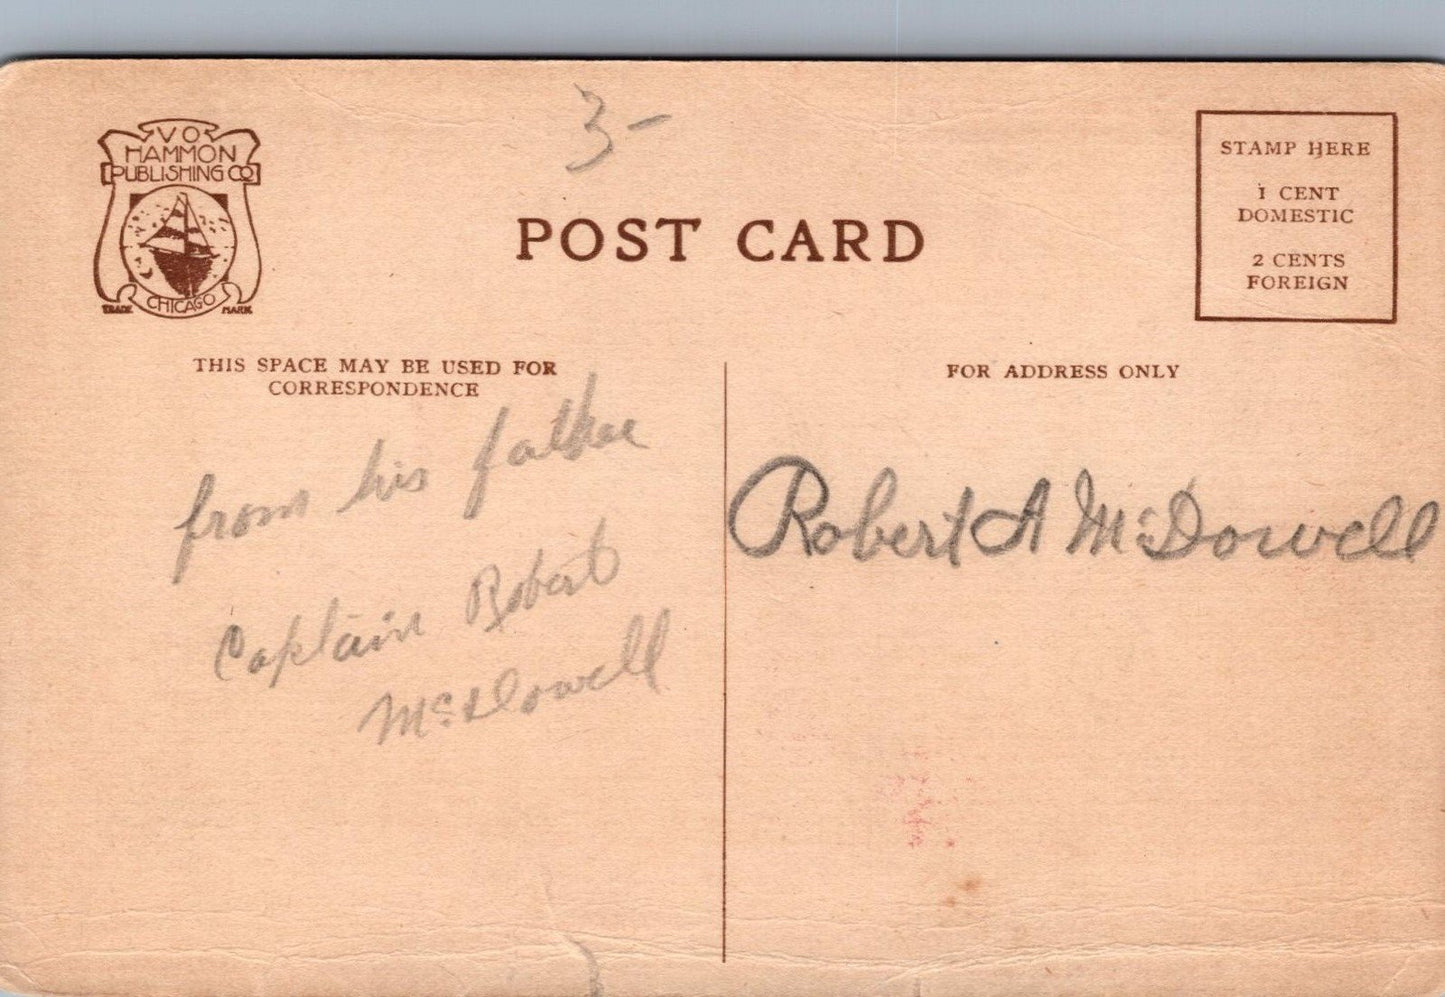 3-
VO
HAMMON
PUBLISHING CO
CHICAGO
TRADE MARK
POST CARD
STAMP HERE
1 CENT
DOMESTIC
2 CENTS
FOREIGN
THIS SPACE MAY BE USED FOR
CORRESPONDENCE
from his father
Captain Robert
McDowell
FOR ADDRESS ONLY
Robert A McDowell